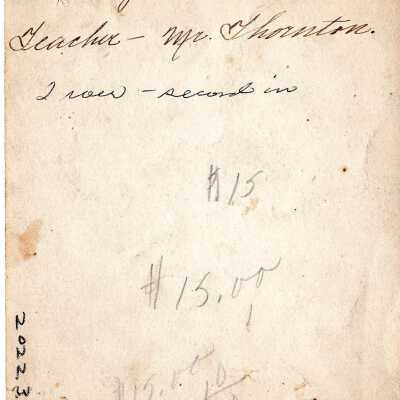 Teacher - Mr. Thornton.
2 row - second in
$15
$15.00
$15.00
2022.3